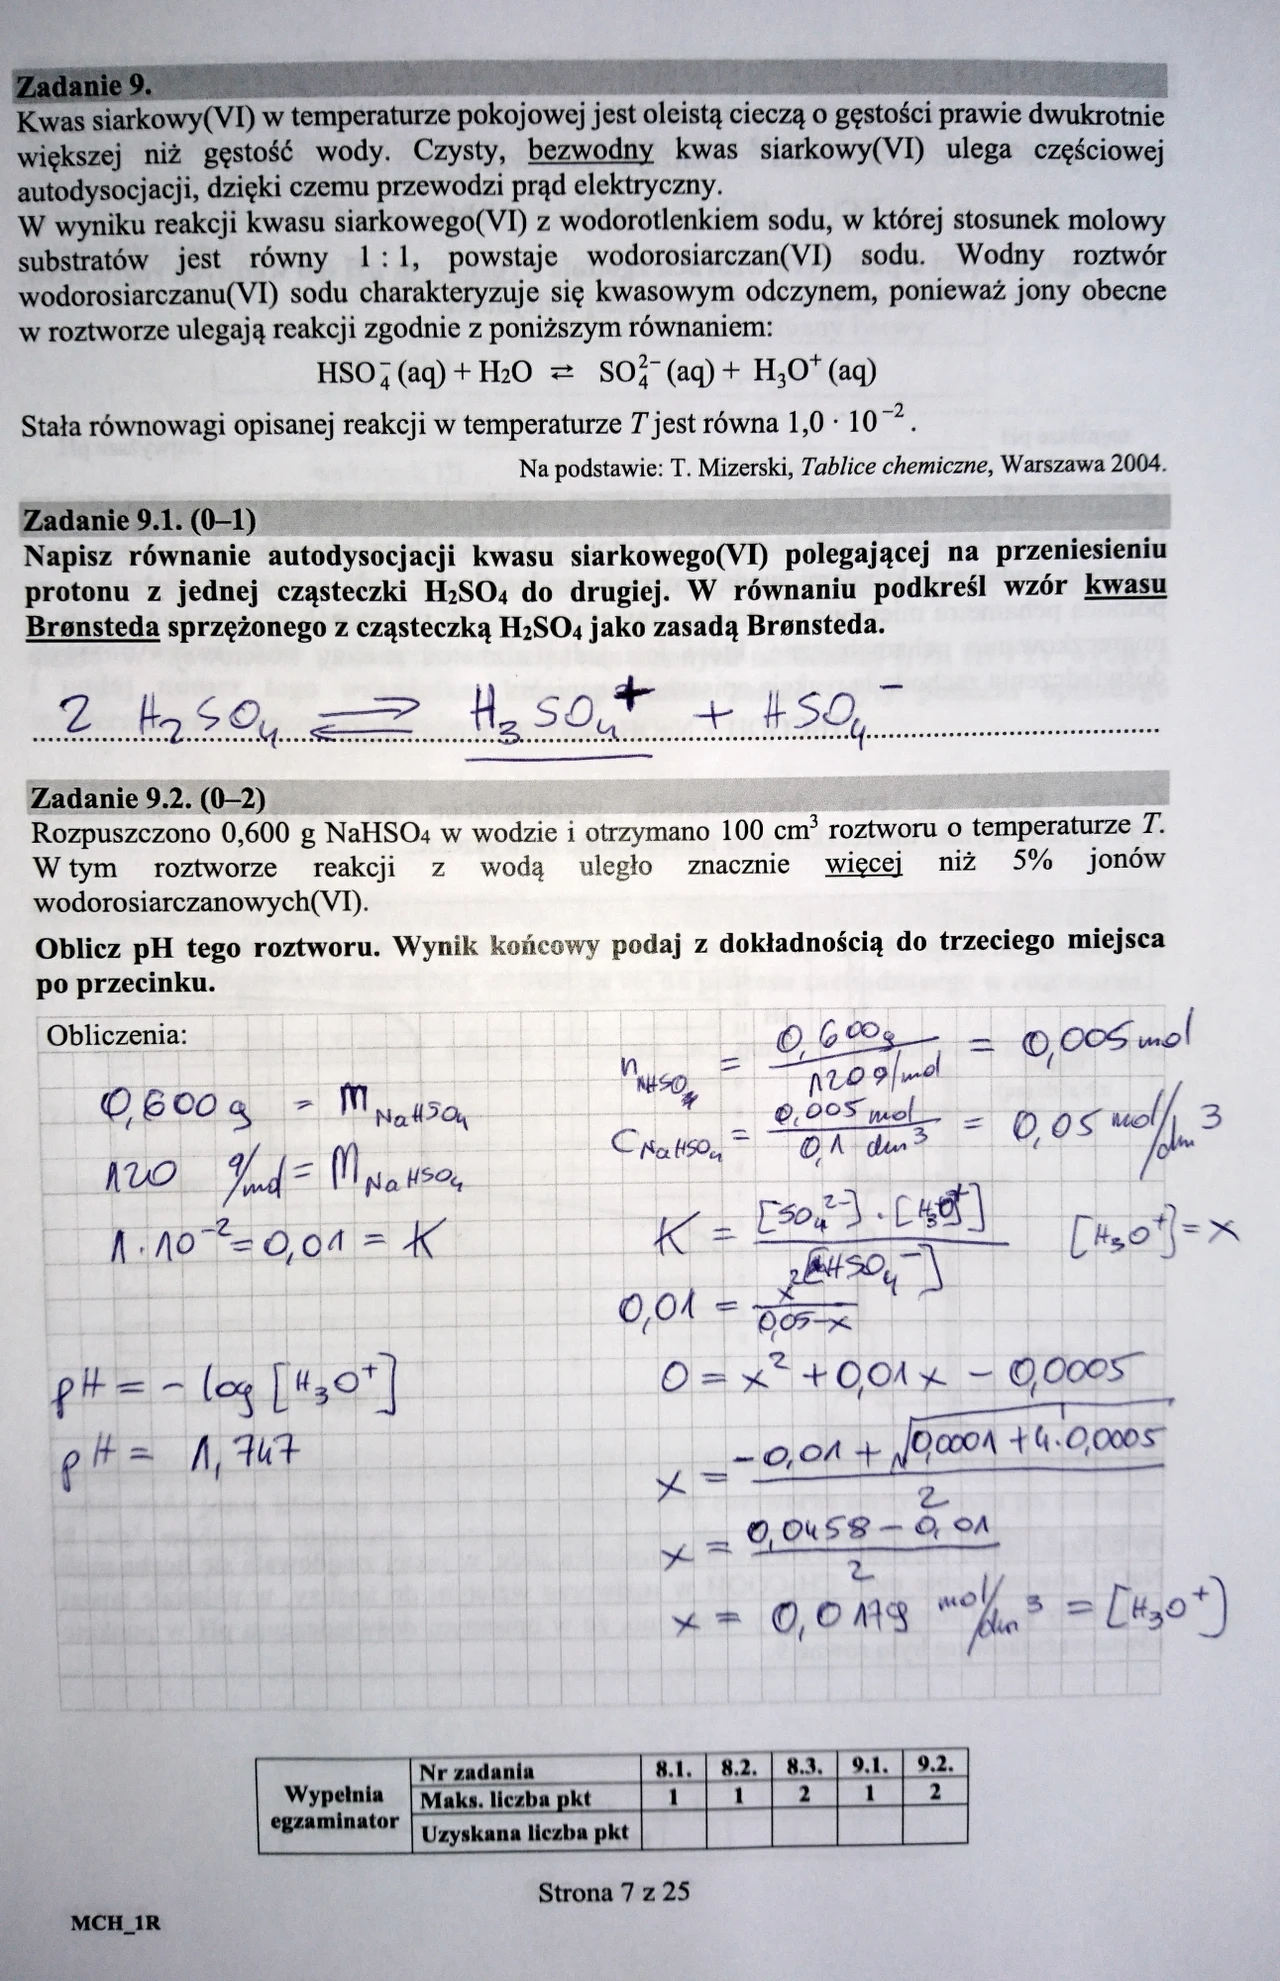 Zadanie 9.
Kwas siarkowy(VI) w temperaturze pokojowej jest oleistą cieczą o gęstości prawie dwukrotnie
większej niż gęstość wody. Czysty, bezwodny kwas siarkowy(VI) ulega częściowej
autodysocjacji, dzięki czemu przewodzi prąd elektryczny.
W wyniku reakcji kwasu siarkowego(VI) z wodorotlenkiem sodu, w której stosunek molowy
substratów jest równy 1 : 1, powstaje wodorosiarczan(VI) sodu. Wodny roztwór
wodorosiarczanu(VI) sodu charakteryzuje się kwasowym odczynem, ponieważ jony obecne
w roztworze ulegają reakcji zgodnie z poniższym równaniem:
HSO₄⁻ (aq) + H₂O ⇄ SO₄²⁻ (aq) + H₃O⁺ (aq)
Stała równowagi opisanej reakcji w temperaturze T jest równa 1,0 · 10⁻².
Na podstawie: T. Mizerski, Tablice chemiczne, Warszawa 2004.
Zadanie 9.1. (0–1)
Napisz równanie autodysocjacji kwasu siarkowego(VI) polegającej na przeniesieniu
protonu z jednej cząsteczki H₂SO₄ do drugiej. W równaniu podkreśl wzór kwasu
Brønsteda sprzężonego z cząsteczką H₂SO₄ jako zasadą Brønsteda.
2 H₂SO₄ ⇄ H₃SO₄⁺ + HSO₄⁻
Zadanie 9.2. (0–2)
Rozpuszczono 0,600 g NaHSO₄ w wodzie i otrzymano 100 cm³ roztworu o temperaturze T.
W tym roztworze reakcji z wodą uległo znacznie więcej niż 5% jonów
wodorosiarczanowych(VI).
Oblicz pH tego roztworu. Wynik końcowy podaj z dokładnością do trzeciego miejsca
po przecinku.
Obliczenia:
0,600 g = m NaHSO₄
120 g/mol = M NaHSO₄
1·10⁻² = 0,01 = K
pH = - log [H₃O⁺]
pH = 1,747
n = 0,600g / 120 g/mol = 0,005 mol
C NaHSO₄ = 0,005 mol / 0,1 dm³ = 0,05 mol/dm³
K = [SO₄²⁻] · [H₃O⁺] / [HSO₄⁻] [H₃O⁺] = x
0,01 = x² / 0,05-x
0 = x² + 0,01x - 0,0005
x = -0,01 + √0,0001 + 4·0,0005 / 2
x = 0,0458 - 0,01 / 2
x = 0,0179 mol/dm³ = [H₃O⁺]
Wypełnia egzaminator
Nr zadania 8.1. 8.2. 8.3. 9.1. 9.2.
Maks. liczba pkt 1 1 2 1 2
Uzyskana liczba pkt
Strona 7 z 25
MCH_1R